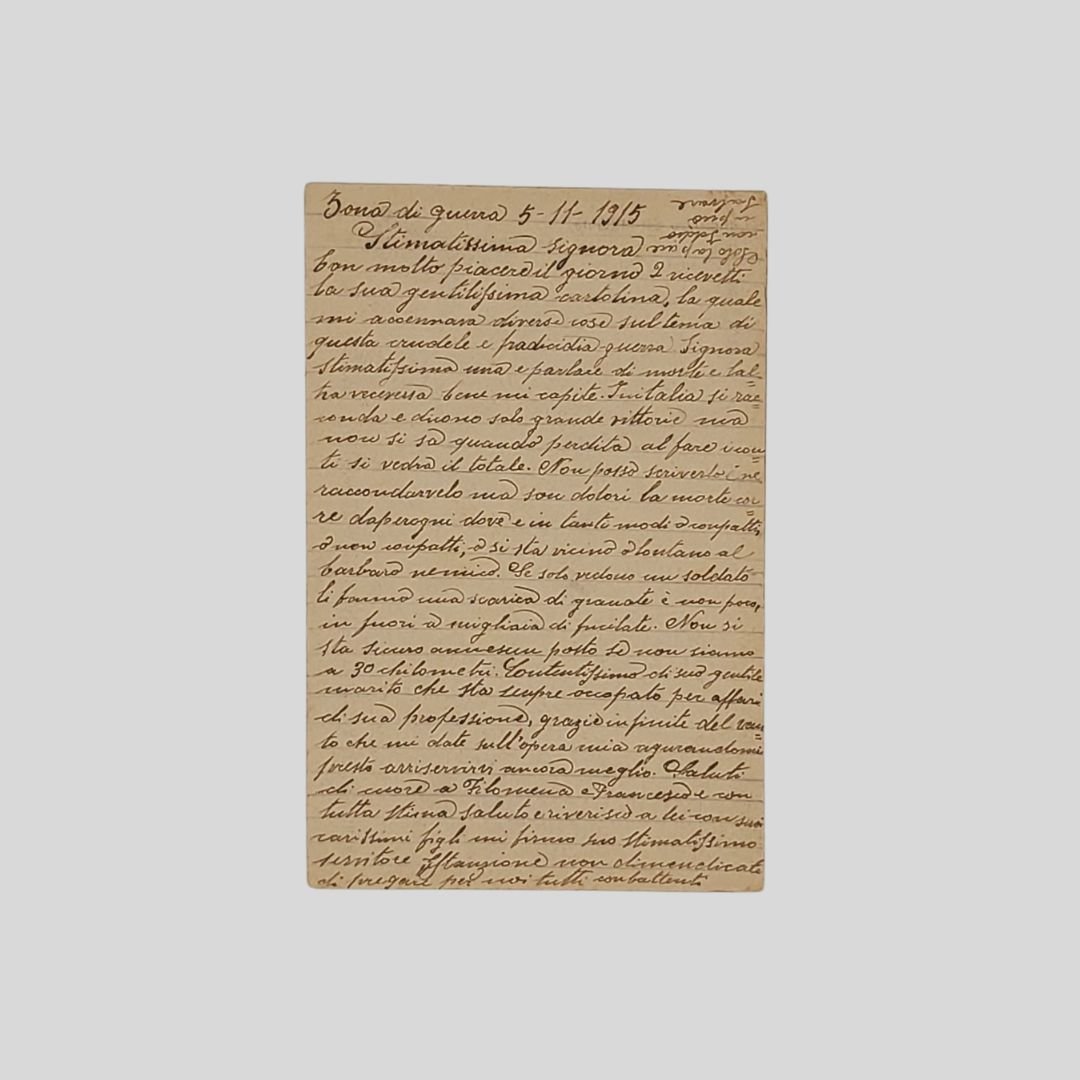 Zona di guerra 5-11-1915
Stimatissima signora
Con molto piacere il giorno 2 ricevetti
la sua gentilissima cartolina, la quale
mi accennava diverse cose sul tema di
questa crudele e guerra Signora
stimatissima una e parlare di morte e lal=
tra veceversa bene mi capite. Initalia si rac=
conda e dicono solo grande vittorie ma
non si sa quando perdita al fare i con=
ti si vedra il totale. Non posso scriverlo è ne
raccondarvelo ma son dolori la morte cor=
re daperogni dove e in tanti modi o conpatti,
o non conpatti, o si sta vicino o lontano al
barbaro nemico. Se solo vedono un soldato
li fanno una scarica di granate è non poco,
in fuori a migliaia di fucilate. Non si
sta sicuro annesun posto se non siamo
a 30 chilometri. Contentissimo di suo gentile
marito che sta senpre occopato per affari
di sua professione, grazie infinite del van=
to che mi date sull'opera mia agurandomi
presto arriservirvi ancora meglio. Saluti
di cuore a Filomena e Francesco e con
tutta stima saluto e riverisco a lei con suoi
carissimi figli mi firmo suo stimatissimo
servitore non dimendicate
di pregare per noi tutti conbattenti
Solo la pace
non
in può